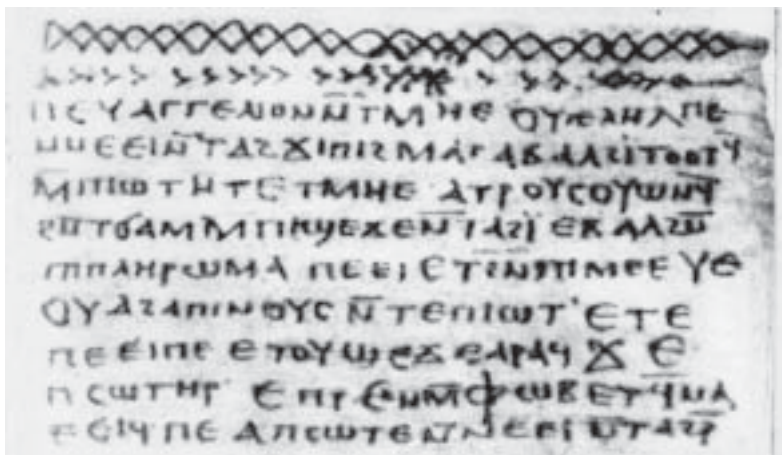 ⲡⲉⲩⲁⲅⲅⲉⲗⲓⲟⲛ ⲛ̄ⲧⲙⲏⲉ ⲟⲩⲧⲉⲗⲏⲗ ⲡⲉ
ⲛⲛⲉⲉⲓ ⲛ̄ⲧⲁϩϫⲓ ⲡⲓϩⲙⲁⲧ ⲁⲃⲁⲗ ϩⲓⲧⲟⲟⲧϥ
ⲙ̄ⲡⲓⲱⲧ ⲛⲧⲉ ⲧⲙⲏⲉ ⲁⲧⲣⲟⲩⲥⲟⲩⲱⲛϥ̄
ϩⲛ̄ ⲧϭⲁⲙ ⲙ̄ⲡⲓϣⲉϫⲉ ⲛ̄ⲧⲁϩⲓ̈ ⲉⲃⲁⲗ ϩⲛ̄
ⲡⲓⲡⲗⲏⲣⲱⲙⲁ ⲡⲉⲉⲓ ⲉⲧϩⲛ̄ ⲡⲓⲙⲉⲉⲩⲉ
ⲟⲩⲁϩⲁ ⲡⲓⲛⲟⲩⲥ ⲛ̄ⲧⲉ ⲡⲓⲱⲧ' ⲉⲧⲉ
ⲡⲉⲉⲓ ⲡⲉ ⲉⲧⲟⲩϣⲉϫⲉ ⲁⲣⲁϥ ϫⲉ
ⲡⲥⲱⲧⲏⲣ ⲉⲡⲣⲉⲛ ⲙ̄ⲫⲱⲃ ⲉⲧϥ̄ⲛⲁ
ⲉⲉⲓϥ ⲡⲉ ⲁⲡⲥⲱⲧⲉ ⲛ̄ⲛⲉⲉⲓ ⲛ̄ⲧⲁϩⲣ̄